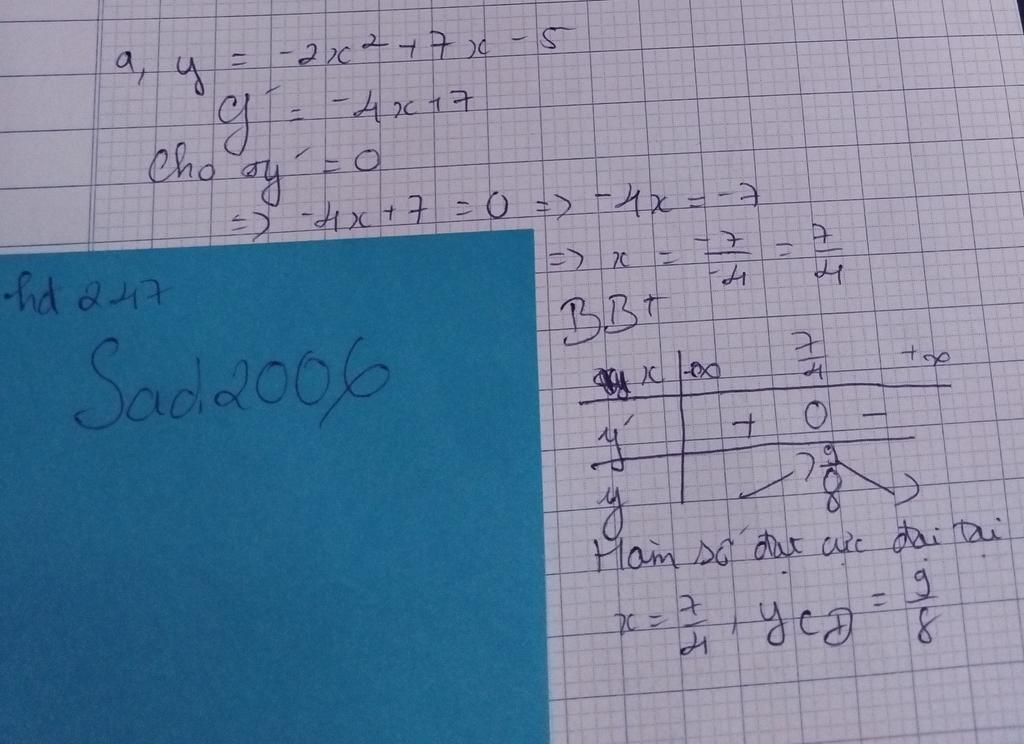 a, y = -2x² + 7x - 5
y' = -4x + 7
Cho y' = 0
=> -4x + 7 = 0 => -4x = -7
=> x = -7/-4 = 7/4
hd 247
Sad.2006
BBT
x -∞ 7/4 +∞
y' + 0 -
y 9/8
Hàm số đạt cực đại tại
x = 7/4, yCĐ = 9/8